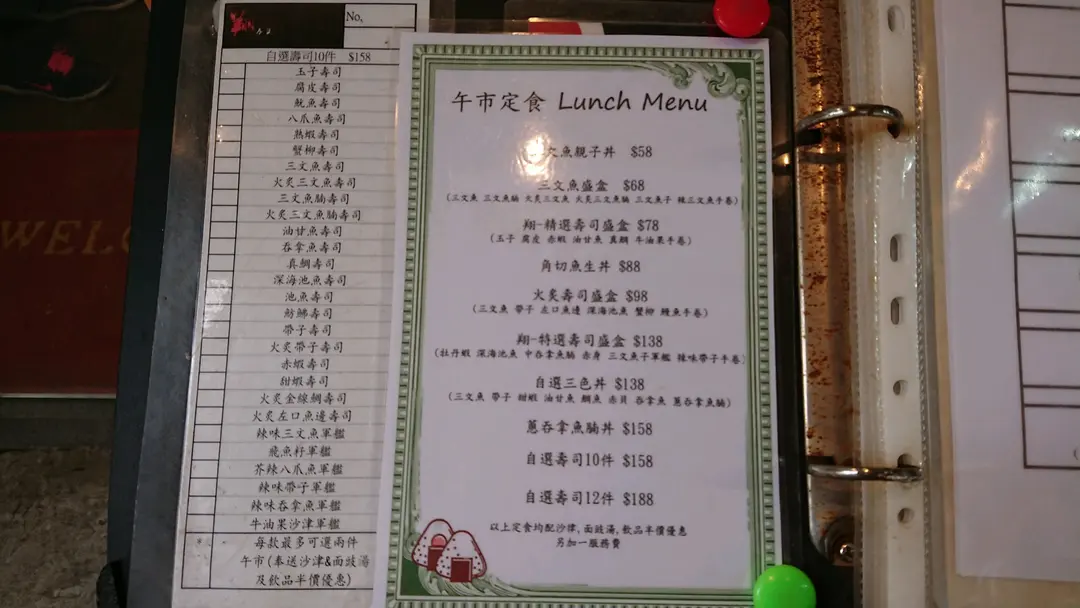 No,
自選壽司10件 $158
玉子壽司
腐皮壽司
魷魚壽司
八爪魚壽司
熟蝦壽司
蟹柳壽司
三文魚壽司
火炙三文魚壽司
三文魚腩壽司
火炙三文魚腩壽司
油甘魚壽司
吞拿魚壽司
真鯛壽司
深海池魚壽司
池魚壽司
魴鮄壽司
帶子壽司
火炙帶子壽司
赤蝦壽司
甜蝦壽司
火炙金線鯛壽司
火炙左口魚邊壽司
辣味三文魚軍艦
飛魚籽軍艦
芥辣八爪魚軍艦
辣味帶子軍艦
辣味吞拿魚軍艦
牛油果沙津軍艦
*
每款最多可選兩件
午市(奉送沙津&面豉湯
及飲品半價優惠)
午市定食 Lunch Menu
文魚親子丼 $58
三文魚盛盒 $68
(三文魚 三文魚腩 火炙三文魚 火炙三文魚腩 三文魚子 辣三文魚手卷)
翔-精選壽司盛盒 $78
(玉子 腐皮 赤蝦 油甘魚 真鯛 牛油果手卷)
角切魚生丼 $88
火炙壽司盛盒 $98
(三文魚 帶子 左口魚邊 深海池魚 蟹柳 鰻魚手卷)
翔-特選壽司盛盒 $138
(牡丹蝦 深海池魚 中吞拿魚腩 赤身 三文魚子軍艦 辣味帶子手卷)
自選三色丼 $138
(三文魚 帶子 甜蝦 油甘魚 鯛魚 赤貝 吞拿魚 蔥吞拿魚腩)
蔥吞拿魚腩丼 $158
自選壽司10件 $158
自選壽司12件 $188
以上定食均配沙律,面豉湯,飲品半價優惠
另加一服務費
WELC